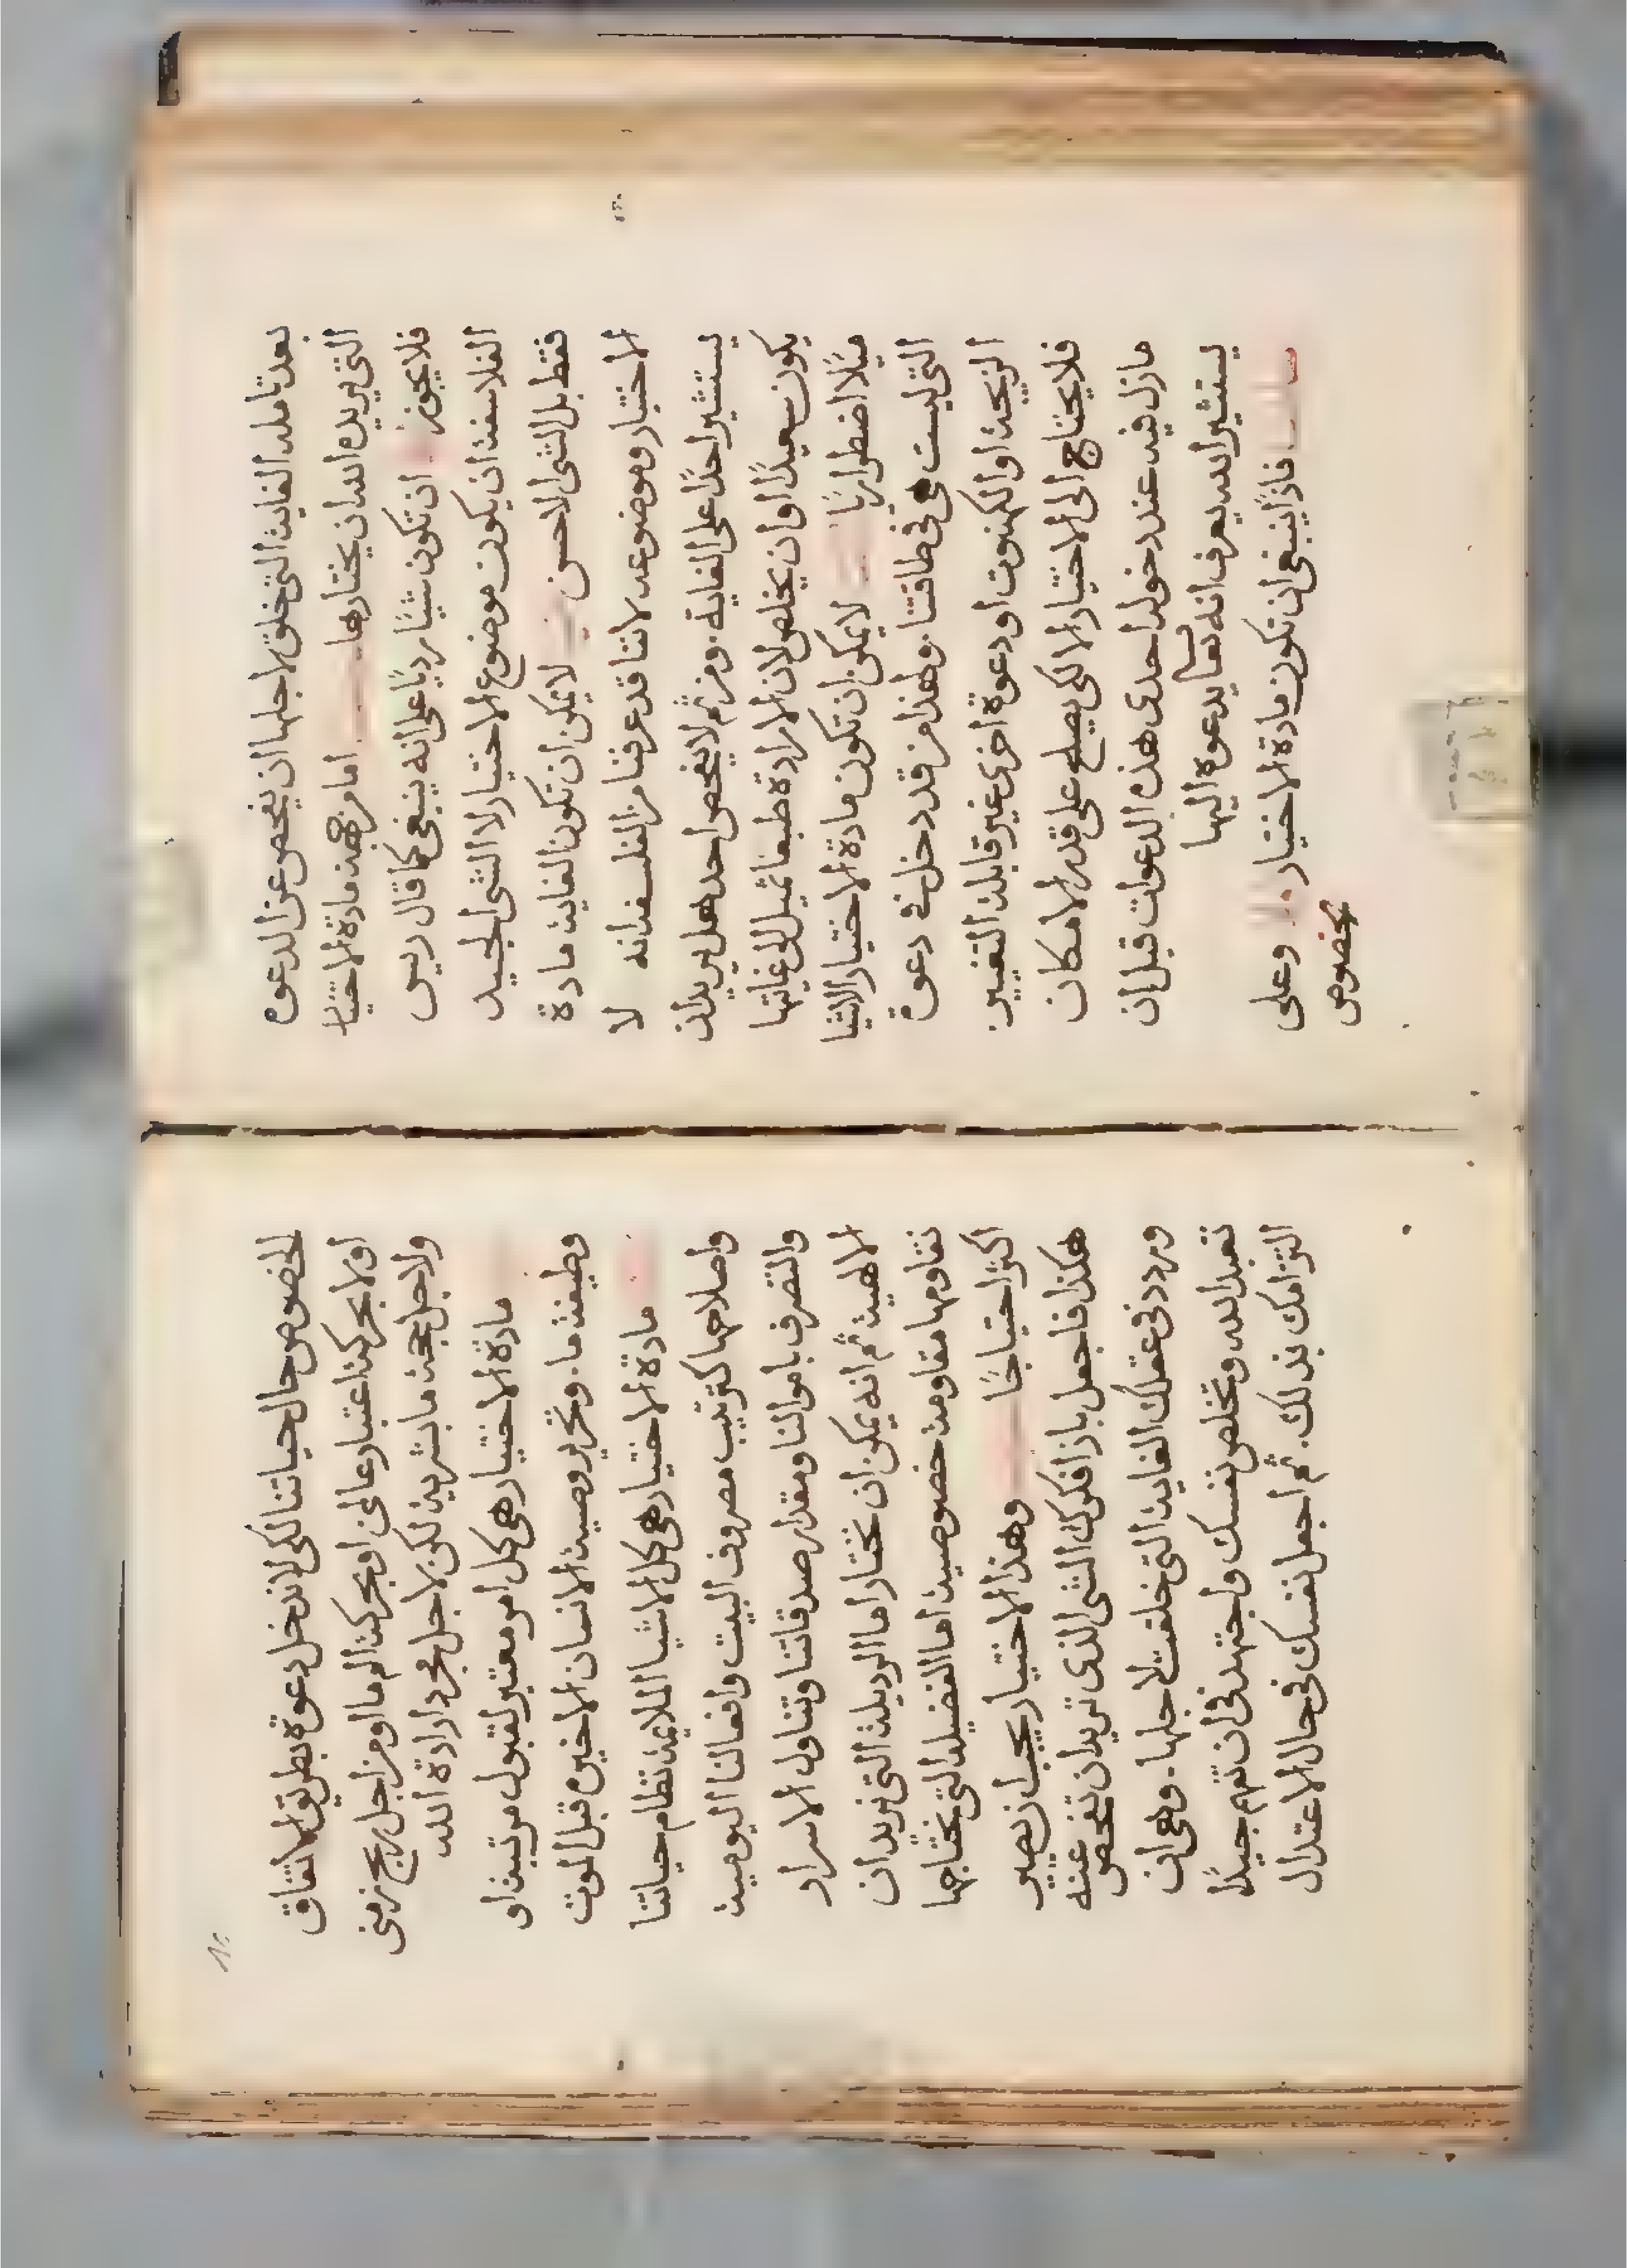 بعد تامله الغايت التي خلق لاجلها ان يفحص عن الدعوه
التي يريده الله ان يختارها اما من جهت مادة الاختيا
فلا يجوز ان تكون شيًا رديًا على انه ينبغي كما قال ريس
الفلاسفه ان يكون موضوع الاختيار لا الشي الجيد
فقط بل الشي الاحسن لا يمكن ان تكون الغايت مادة
الاختيار وموضوعه لاننا قد عرفنا من الفلسفه انه لا
يستشير احدًا على الغاية. ومن ثم لا يفحص احد هل يريد ان
يكون سعيدًا او ان يخلص لان الارادة طبعًا تميل الى غايتها
ميلًا اضطراريًا لا يمكن ان تكون مادة الاختيار الاشيا
التي ليست هي في طاقتنا. ولهذا من قد دخل في دعوة
الزيجه او الكهنوت او دعوة اخرى غير قابلة التغيير
فلا يحتاج الى الاختيار الا لكي يصلح على قدر الامكان
مازل فيه عند دخوله احدى هذه الدعوات قبل ان
يستشير الله يعرف انه تعا يدعوه اليها
فاذًا ينبغي ان تكون مادة الاختيار وعلى
بخصوص
الخصوص حال حياتنا لكي لا ندخل دعوة بطريق الاتفاق
او لا بحركة اعتبار عالمي او بحركة الم ما او من اجل ربح زمني
ولا جل محبه ما بشريه لكن لاجل مجرد ارادة الله
مادة الاختيار هي كل امر معتبر لقبول مرتبت او
وظيفت ما. وتحرير وصيت الانسان الاخيره قبل الموت
مادة الاختيار هي كل الاشيا الملايمه نظام حياتنا
واصلاحها كترتيب مصروف البيت وافعالنا اليوميت
والتصرف باموالنا ومقدار صدقاتنا وتناول الاسرار
الالهيت ثم انه يمكن ان نختار اما الرديلة التي نريد ان
نقاومها مقاومت خصوصيت اما الفضيله التي نحتاجها
اكثر احتياجًا وهذا الاختيار يجب ان يصير
هكذا فاجعل باز افكرك الشي الذي تريد ان تفحص عنه
وردد في عقلك الغايت التي خلقت لاجلها. وهي ان
تعبد الله وتخلص نفسك واجتهد في ان تفهم جيدًا
التزامك بذلك. ثم اجعل نفسك في حال الاعتدال